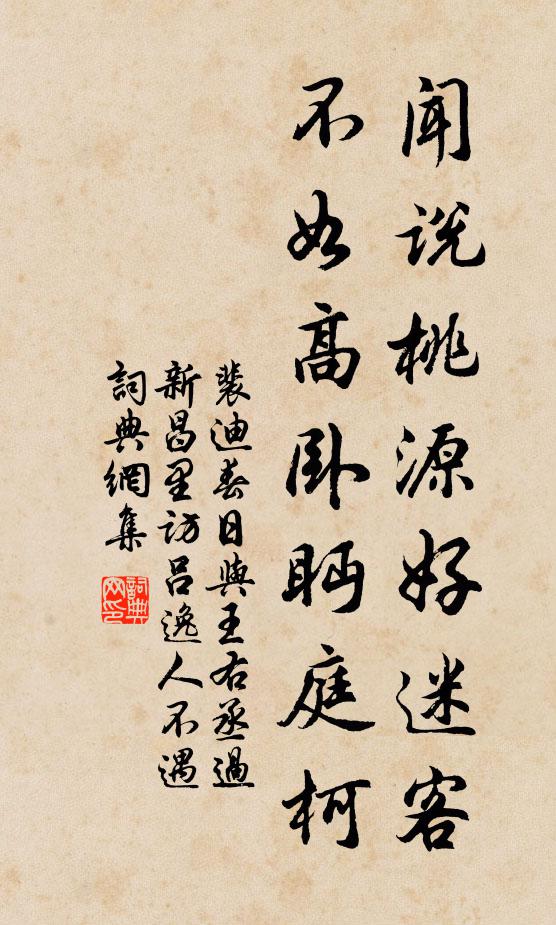 闻说桃源好迷客
不如高卧眄庭柯
裴迪春日與王右丞過
新昌里访吕逸人不遇
詞典網集
詞典网印